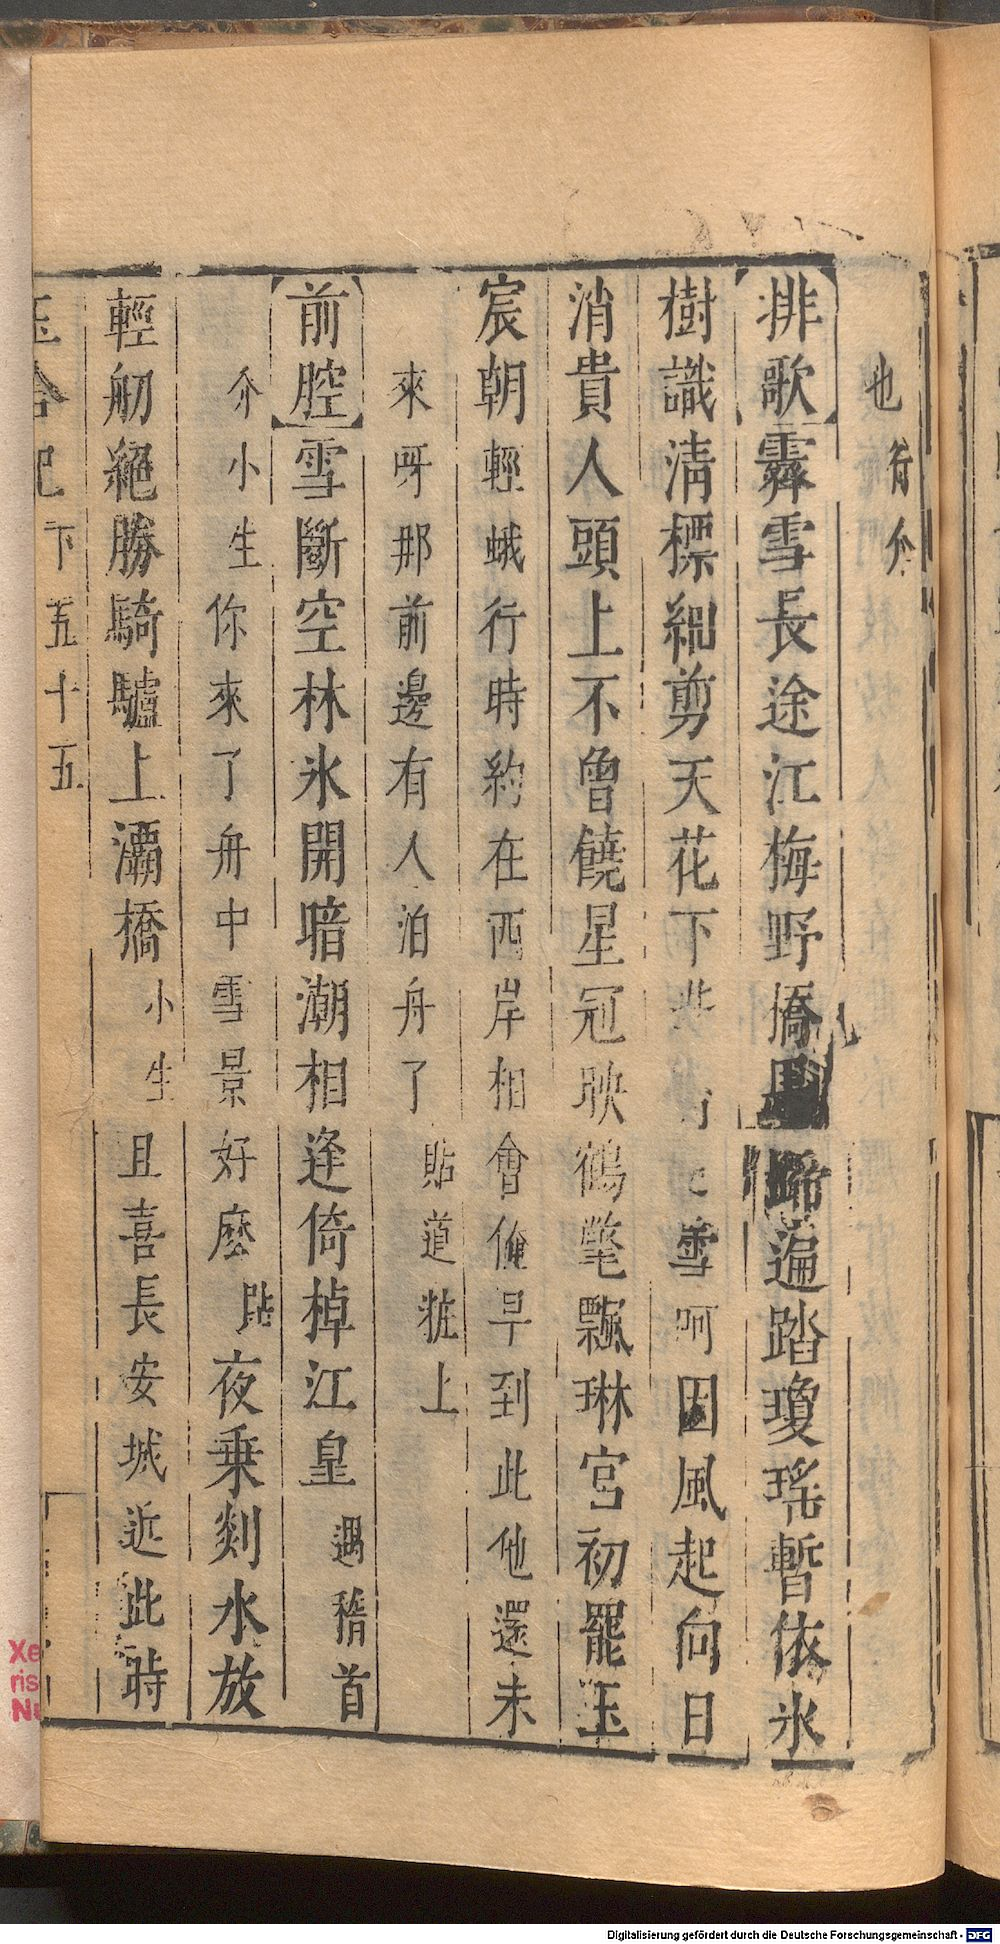 也行介
排歌霽雪長途江梅野橋遍踏瓊瑤暫依氷
樹識清標細剪天花下雪呵因風起向日
消貴人頭上不曾饒星冠映鶴氅飄琳宮初罷玉
宸朝輕蛾行時約在西岸相會俺早到此他還未
來呀那前邊有人泊舟了貼道粧上
前腔雪斷空林氷開暗潮相逢倚棹江皐遇稽首
介小生你來了舟中雪景好麽貼夜乘剡水放
輕舠絕勝騎驢上灞橋小生且喜長安城近此時
玉合記下五十五
Digitalisierung gefördert durch die Deutsche Forschungsgemeinschaft - DFG